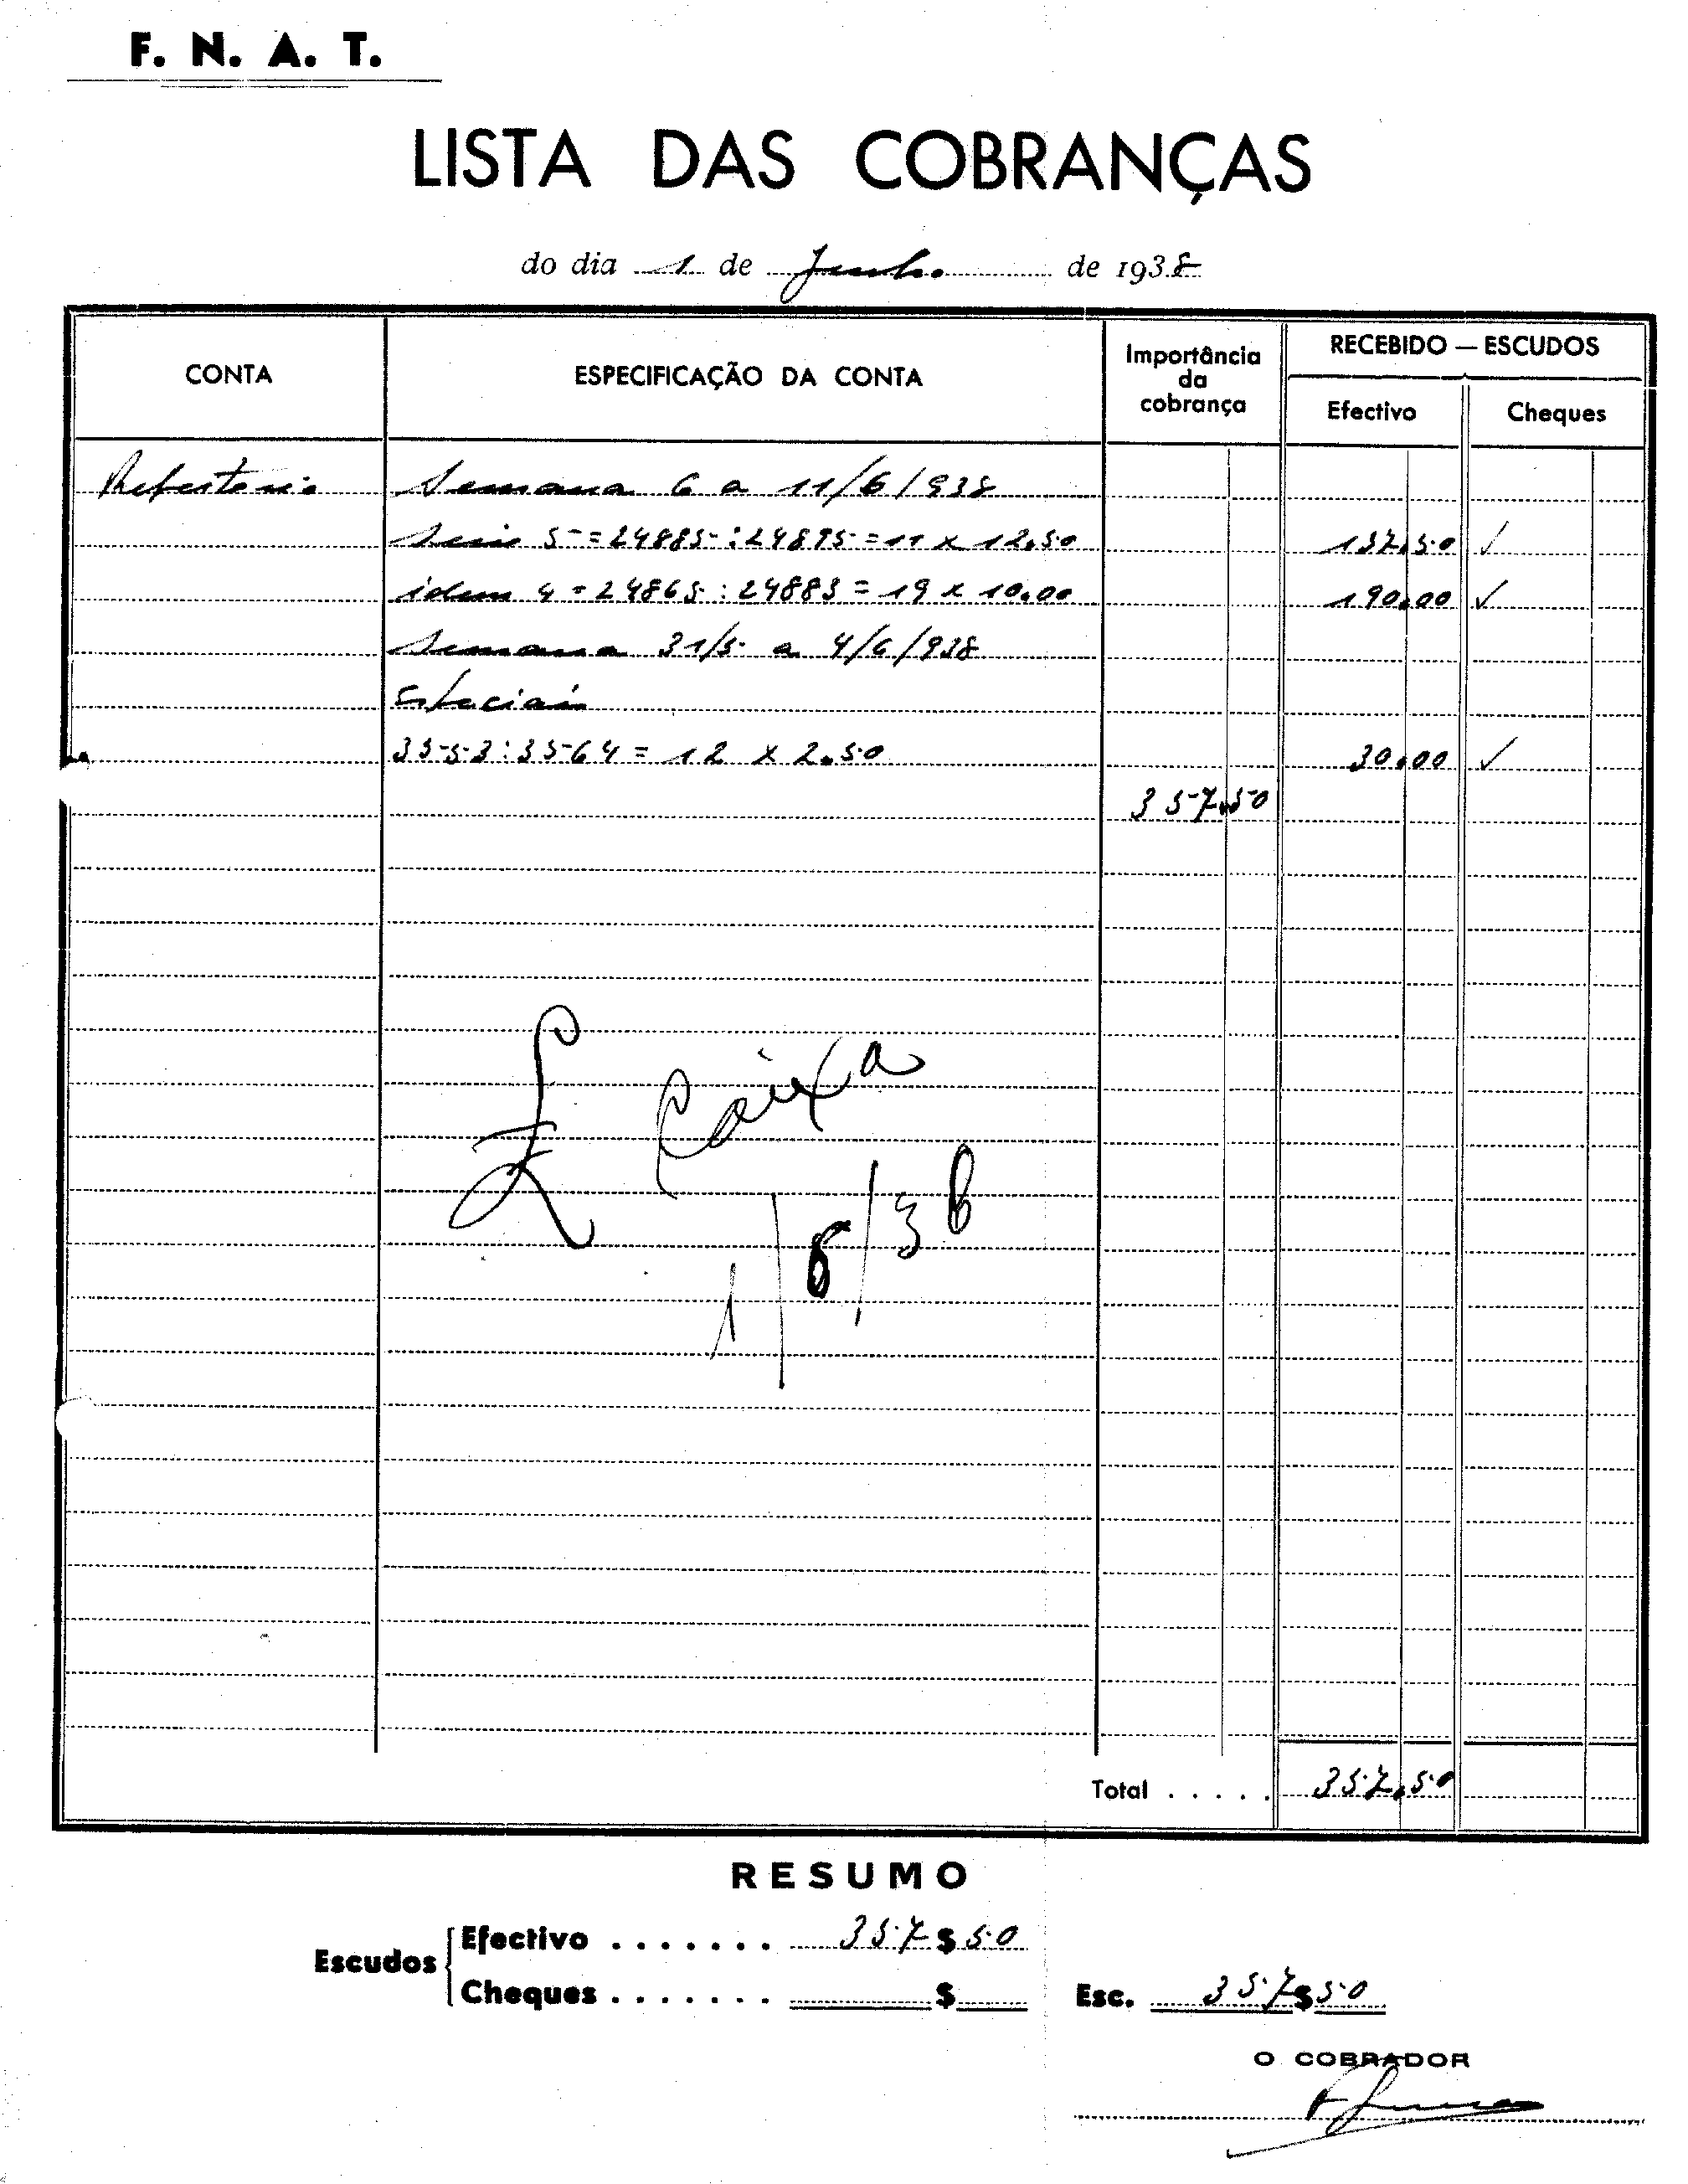 F. N. A. T.
LISTA DAS COBRANÇAS
do dia 1 de Junho de 1938
CONTA ESPECIFICAÇÃO DA CONTA Importância da cobrança RECEBIDO — ESCUDOS
Efectivo Cheques
Refeitorio Semana 6 a 11/6/938
Serie 5 = 24885 : 24895 = 11 x 12.50 137.50 ✓
idem 4 = 24865 : 24883 = 19 x 10.00 190.00 ✓
Semana 31/5 a 4/6/938
Especiais
3553 : 3564 = 12 x 2.50 30.00 ✓
357.50
Caixa
1/6/38
Total . . . . . 357.50
RESUMO
Escudos Efectivo . . . . . . . 357$50
Cheques . . . . . . . $ Esc. 357$50
O COBRADOR